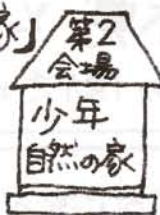 家」
第2
会場
少年
自然の家